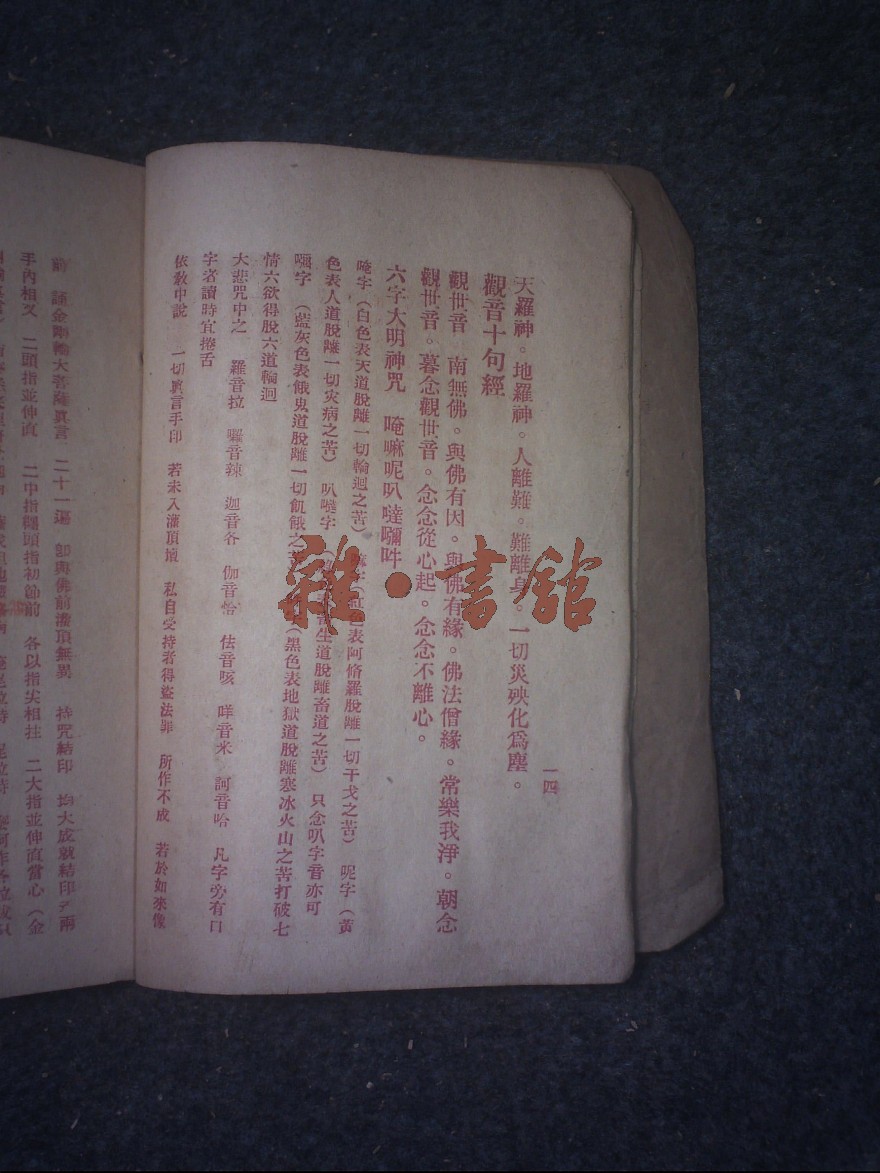 一四
天羅神。地羅神。人離難。難離身。一切災殃化爲塵。
觀音十句經
觀世音　南無佛。與佛有因。與佛有緣。佛法僧緣。常樂我淨。朝念
觀世音。暮念觀世音。念念從心起。念念不離心。
六字大明神咒　唵嘛呢叭噠𡄣吽
唵字（白色表天道脫離一切輪迴之苦）（紅色表阿脩羅脫離一切干戈之苦）呢字（黃
色表人道脫離一切灾病之苦）叭噠字（生道脫離畜道之苦）只念叭字音亦可
𡄣字（藍灰色表餓鬼道脫離一切飢餓之苦（黑色表地獄道脫離寒冰火山之苦打破七
情六欲得脫六道輪迴
大悲咒中之　羅音拉　囉音辣　迦音各　伽音恰　佉音咳　哶音米　訶音哈　凡字旁有口
字者讀時宜捲舌
依敎中說　一切眞言手印　若未入灌頂壇　私自受持者得盜法罪　所作不成　若於如來像
前　誦金剛輪大菩薩眞言　二十一遍　卽與佛前灌頂無異　持咒結印　均大成就結印　兩
手內相叉　二頭指並伸直　二中指纏頭指初節前　各以指尖相拄　二大指並伸直當心（金
雜·書館